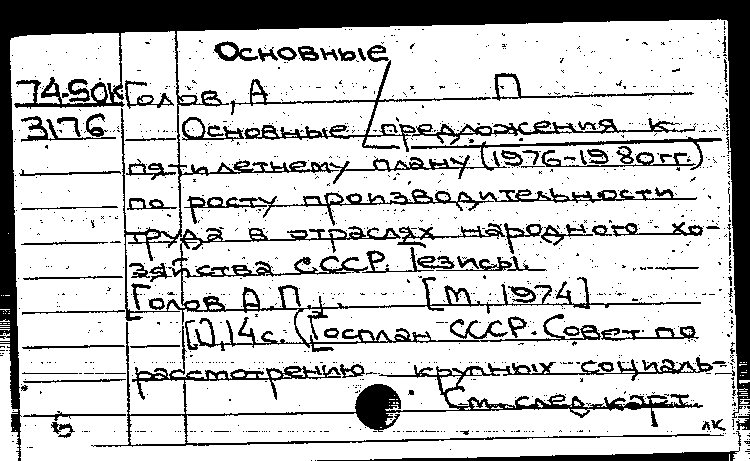 Основные
74-50к Голов, А П
3176 Основные предложения к
пятилетнему плану (1976-1980гг.)
по росту производительности
труда в отраслях народного хо-
зяйства СССР. Тезисы.
[Голов А.П.]. [М., 1974].
[1], 14 с. (Госплан СССР. Совет по
рассмотрению крупных социаль-
См. след. карт.
Б
лк